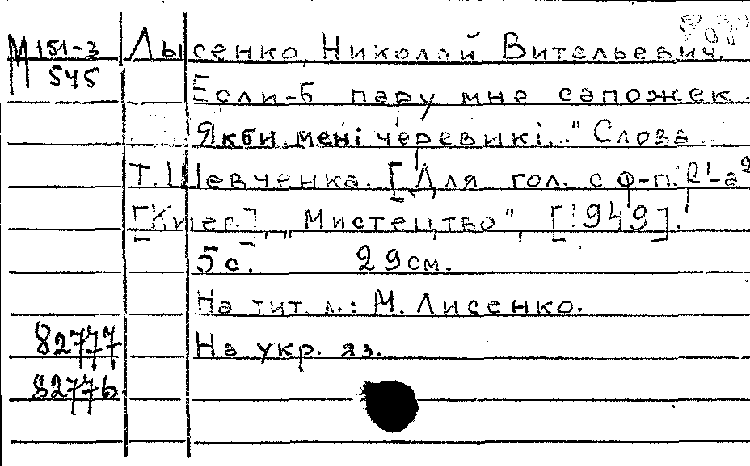 М 151-3 Лысенко, Николай Витальевич.
545
Если-б пару мне сапожек.
Якби мені черевикі..." Слова
Т. Шевченка. [Для гол. с ф-п.
[Киев], "Мистецтво", [1949].
5 с. 29см.
На тит. л.: М. Лисенко.
82777 На укр. яз.
82776